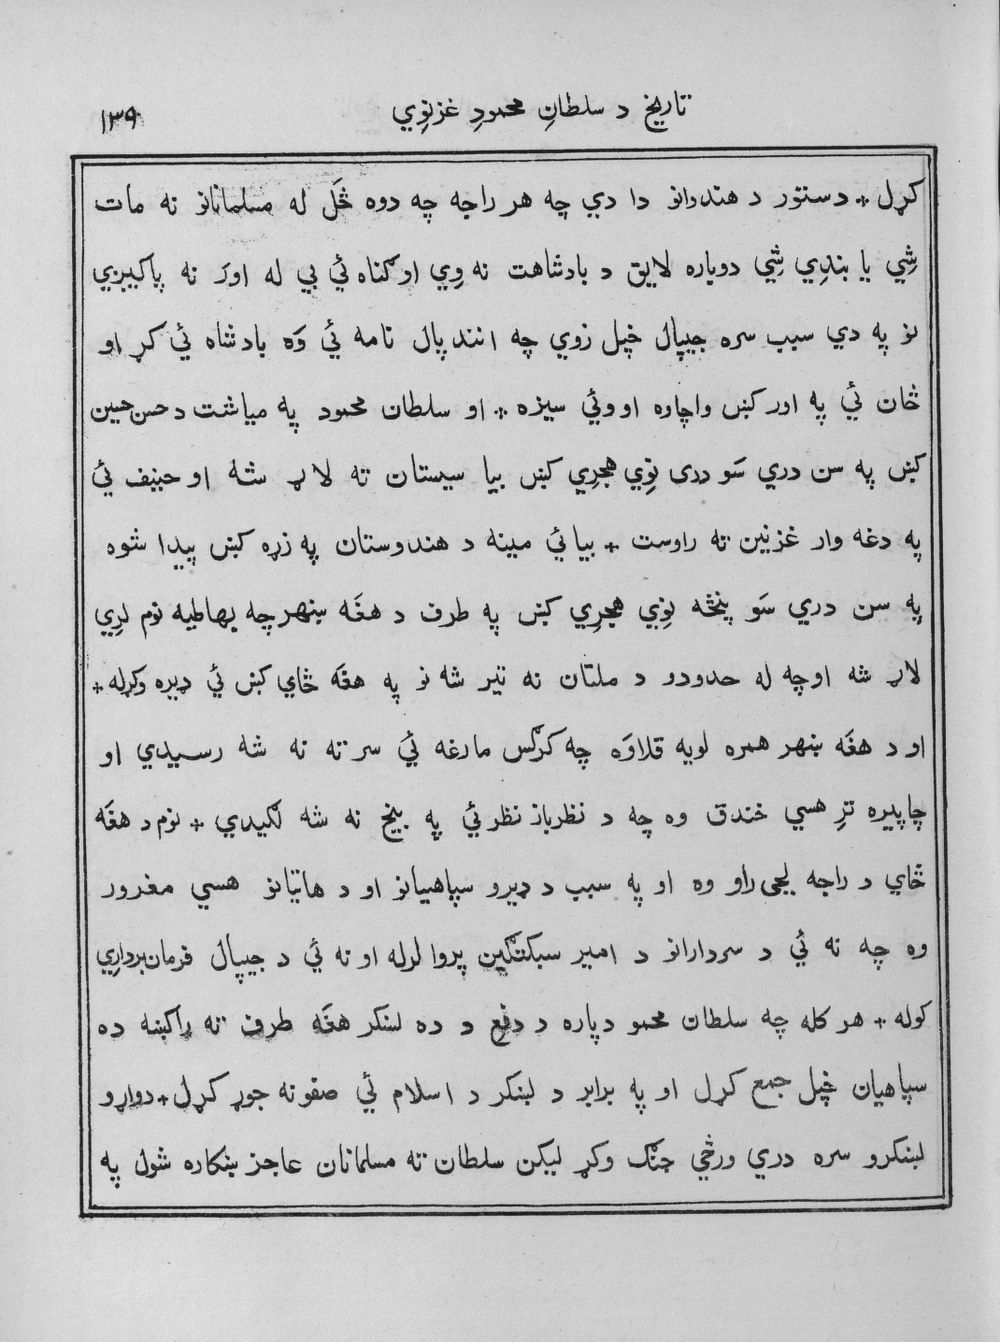 تاريخ د سلطانِ محمودِ غزنوِي
١٣٩
کړل + دستور د هندوانو دا دي چه هر راجه چه دوه څَل له مسلمانانو نه مات
شِي يا بندِي شِي دوباره لايق د بادشاهت نه وِي او ګناه ئي بي له اور نه پاکيږي
نو په دي سبب سره جيپال خپل زوي چه انندپال نامه ئي وَه بادشاه ئي کړ او
ځان ئي په اور کښ واچاوه او وئي سيزه + او سلطان محمود په مياشت د حسن حسين
کښ په سن دري سَو دري نوِي هجرِي کښ بيا سيستان ته لاړ شه او حنيف ئي
په دغه وار غزنين ته راوست + بيا ئي مينه د هندوستان په زړه کښ پيدا شوه
په سن دري سَو پنځه نوِي هجرِي کښ په طرف د هغَه ښهر چه بهاطيه نوم لرِي
لاړ شه او چه له حدودو د ملتان نه تير شه نو په هغَه ځاي کښ ئي ډيره وکړله +
او د هغَه ښهر همره لويه قلا وَه چه کرګس مارغه ئي سر ته نه شه رسيدي او
چاپيره ترِ هسي خندق وه چه د نظرباز نظر ئي په بيخ نه شه لګيدي + نوم د هغَه
ځاي د راجه بجي راو وه او په سبب د ډيرو سپاهيانو او د هاتيانو هسي مغرور
وه چه نه ئي د سردارانو د امير سبکتګين پروا لرله او نه ئي د جيپال فرمان‌بردارِي
کوله + هر کله چه سلطان محمو دپاره د دفع د ده لښکر هغَه طرف ته راکښه ده
سپاهيان خپل جمع کړل او په برابر د لښکر د اسلام ئي صفونه جوړ کړل + دواړو
لښکرو سره دري ورځي جنګ وکړ ليکن سلطان ته مسلمانان عاجز ښکاره شول په